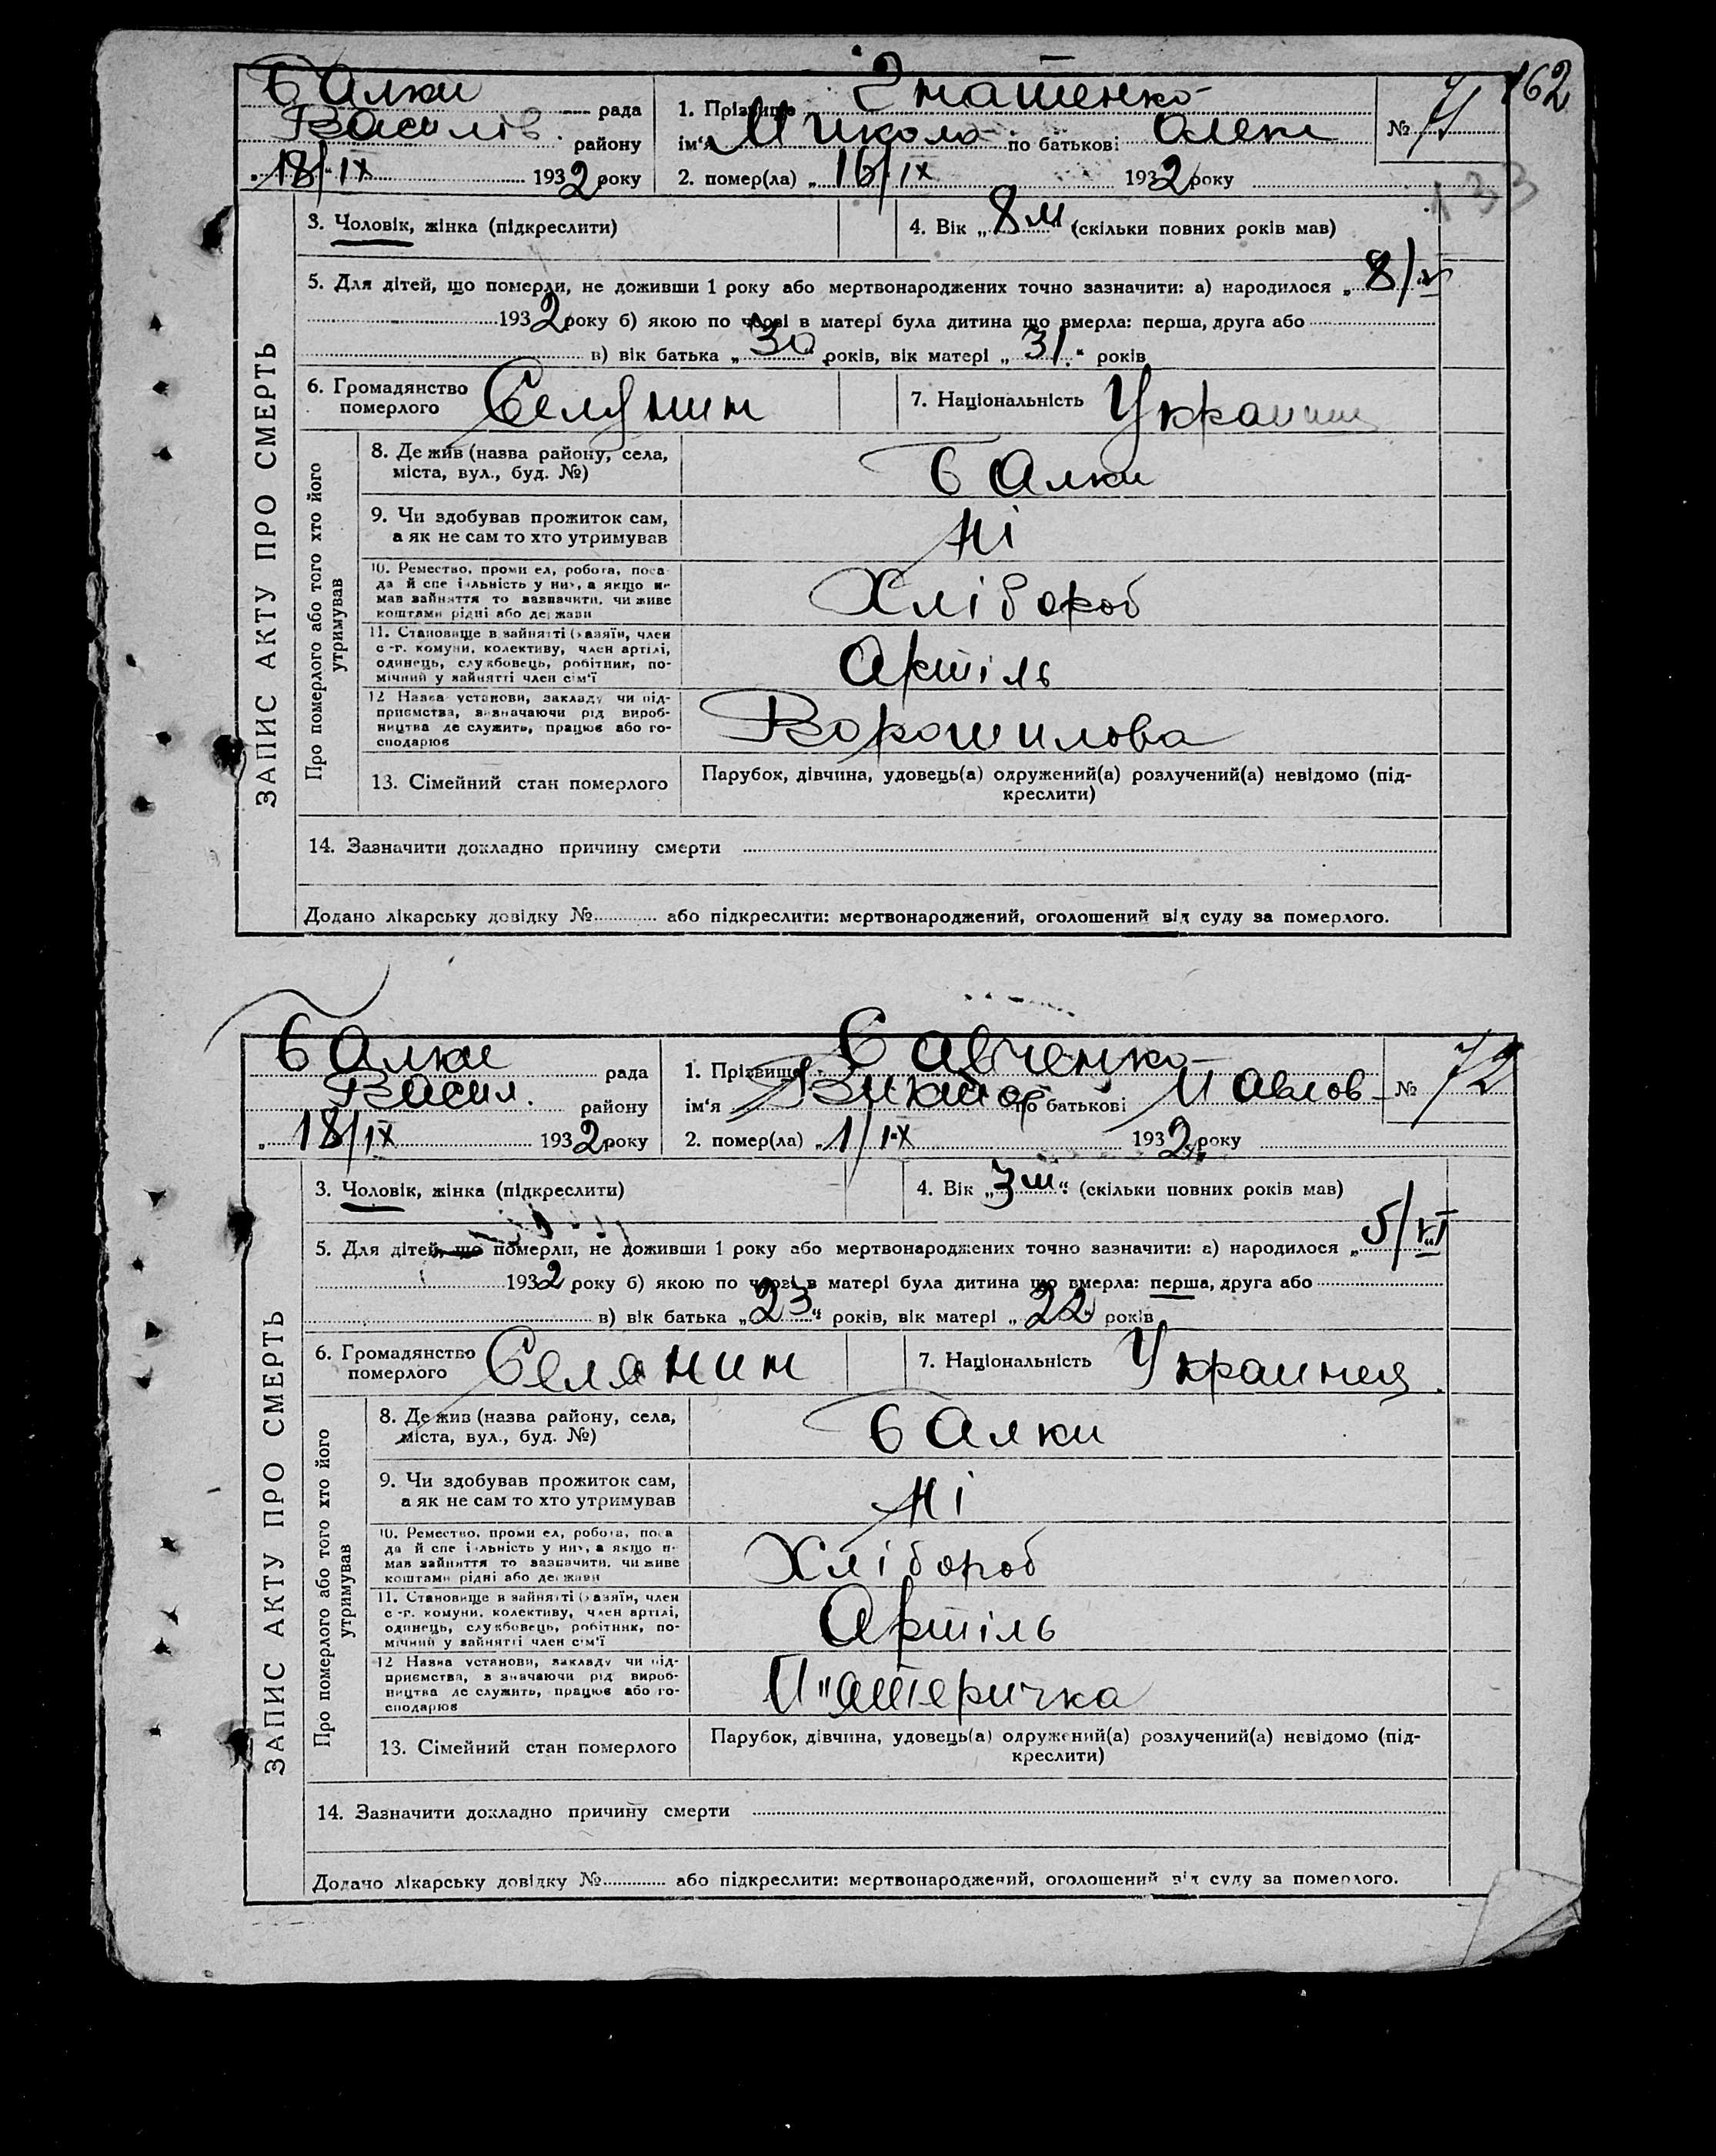 162
Балки рада
Василів. району
„18/IX 1932 року
1. Прізвище Гнатенко
ім'я Микола по батькові Олекс
№ 71
2. помер(ла) „16/IX 1932 року
133
ЗАПИС АКТУ ПРО СМЕРТЬ
3. Чоловік, жінка (підкреслити)
4. Вік „8 м" (скільки повних років мав)
5. Для дітей, що померли, не доживши 1 року або мертвонароджених точно зазначити: а) народилося „8/
1932 року б) якою по черзі в матері була дитина що вмерла: перша, друга або
в) вік батька „30" років, вік матері „31" років
6. Громадянство померлого Селянин
7. Національність Украинец
Про померлого або того хто його утримував
8. Де жив (назва району, села,
міста, вул., буд. №)
Балки
9. Чи здобував прожиток сам,
а як не сам то хто утримував
Ні
10. Ремество, промисел, робота, поса-
да й спеціяльність у них, а якщо не
мав зайняття то зазначити, чи живе
коштами рідні або держави
Хлібороб
11. Становище в зайнятті (хазяїн, член
с.-г. комуни, колективу, член артілі,
одинець, службовець, робітник, по-
мічний у зайнятті член сім'ї
Артіль
12 Назва установи, закладу чи під-
приємства, визначаючи рід вироб-
ництва де служить, працює або го-
сподарює
Ворошилова
13. Сімейний стан померлого
Парубок, дівчина, удовець(а) одружений(а) розлучений(а) невідомо (під-
креслити)
14. Зазначити докладно причину смерти
Додано лікарську довідку № або підкреслити: мертвонароджений, оголошений від суду за померлого.
Балки рада
Васил. району
„18/IX 1932 року
1. Прізвище Савченко
ім'я Виктор по батькові Павлов
№ 72
2. помер(ла) „1/IX 1932 року
ЗАПИС АКТУ ПРО СМЕРТЬ
3. Чоловік, жінка (підкреслити)
4. Вік „3 м" (скільки повних років мав)
5. Для дітей, що померли, не доживши 1 року або мертвонароджених точно зазначити: а) народилося „5/VI
1932 року б) якою по черзі в матері була дитина що вмерла: перша, друга або
в) вік батька „23" років, вік матері „22" років
6. Громадянство померлого Селянин
7. Національність Украинец
Про померлого або того хто його утримував
8. Де жив (назва району, села,
міста, вул., буд. №)
Балки
9. Чи здобував прожиток сам,
а як не сам то хто утримував
Ні
10. Ремество, промисел, робота, поса-
да й спеціяльність у них, а якщо не
мав зайняття то зазначити, чи живе
коштами рідні або держави
Хлібороб
11. Становище в зайнятті (хазяїн, член
с.-г. комуни, колективу, член артілі,
одинець, службовець, робітник, по-
мічний у зайнятті член сім'ї
Артіль
12 Назва установи, закладу чи під-
приємства, визначаючи рід вироб-
ництва де служить, працює або го-
сподарює
П"ятеричка
13. Сімейний стан померлого
Парубок, дівчина, удовець(а) одружений(а) розлучений(а) невідомо (під-
креслити)
14. Зазначити докладно причину смерти
Додано лікарську довідку № або підкреслити: мертвонароджений, оголошений від суду за померлого.